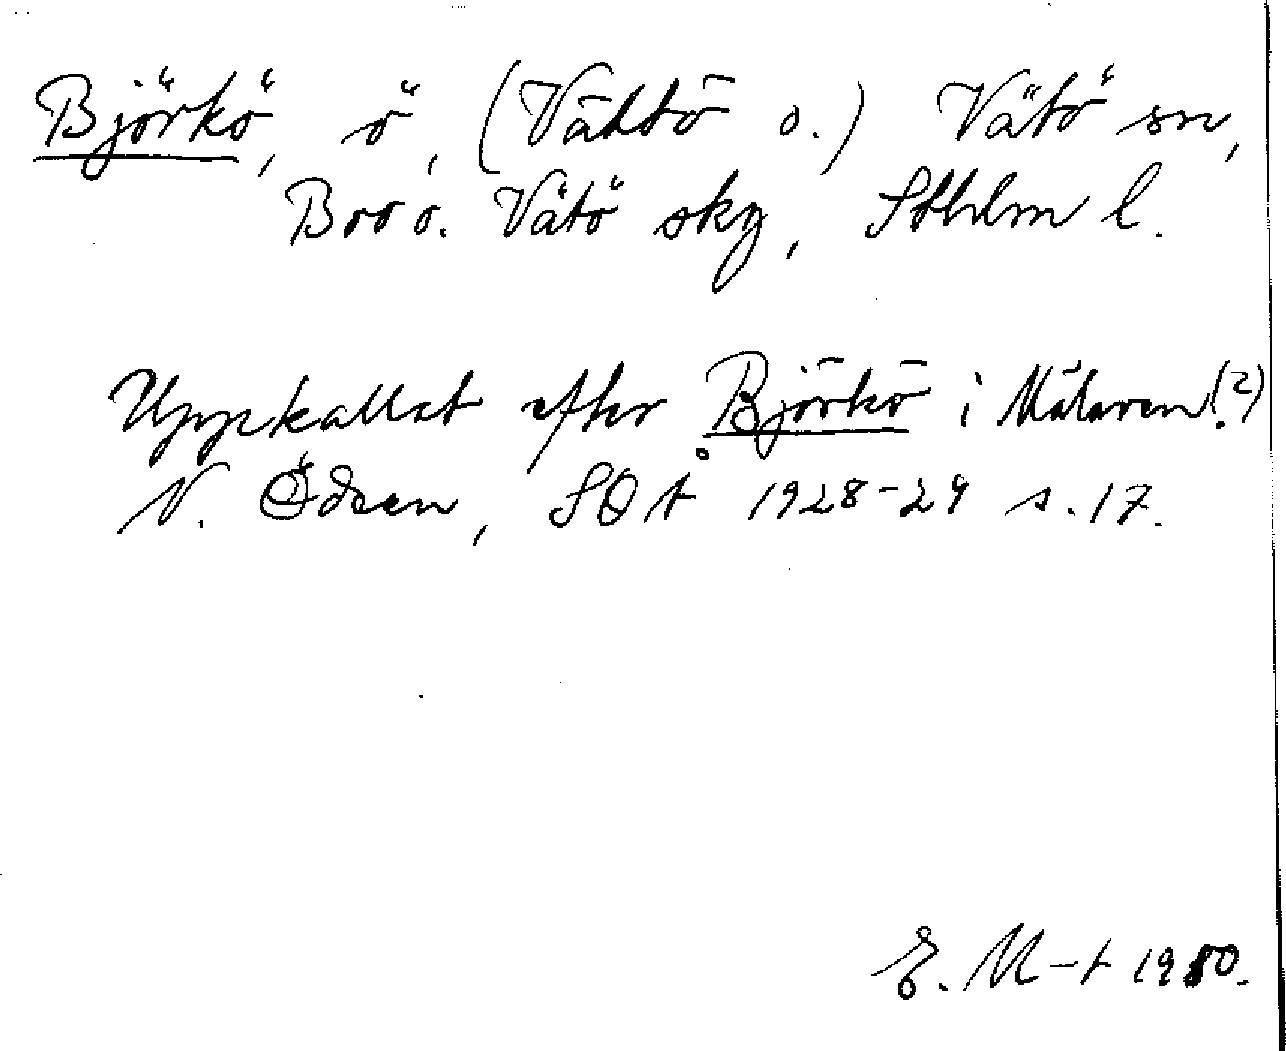 Björkö, ö, (Vähtö o.) Vätö sn,
Bro o. Vätö skg, Sthlm l.
Uppkallat efter Björkö i Mälaren.(?)
N. Ödeen, SOÅ 1928-29 s. 17.
E. M-t 1980.